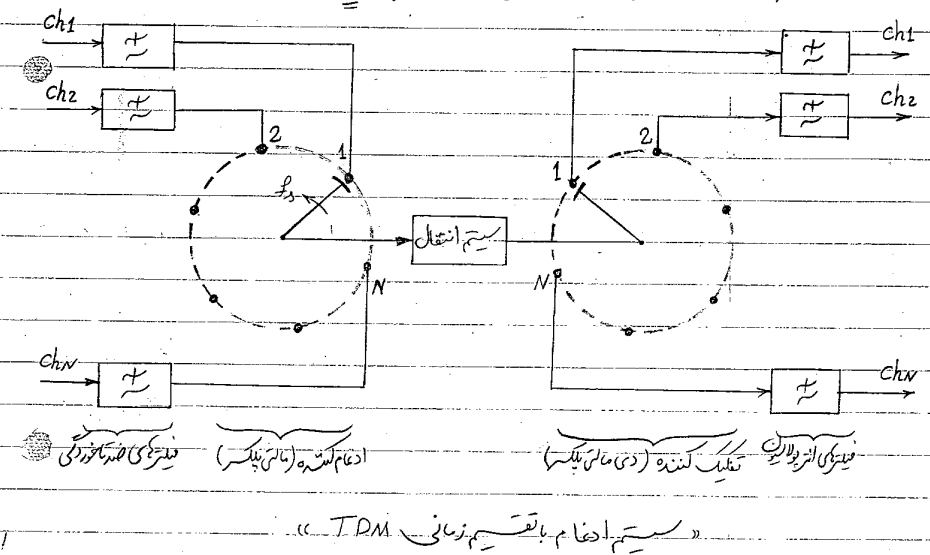 Ch1
Ch1
Ch2
Ch2
2
2
1
1
fs
سیستم انتقال
N
N
ChN
ChN
فیلترهای ضد تاخوردگی
ادغام کننده (مالتی پلکسر)
تفکیک کننده (دی مالتی پلکسر)
فیلترهای انترپولاسیون
« سیستم ادغام با تقسیم زمانی TDM »